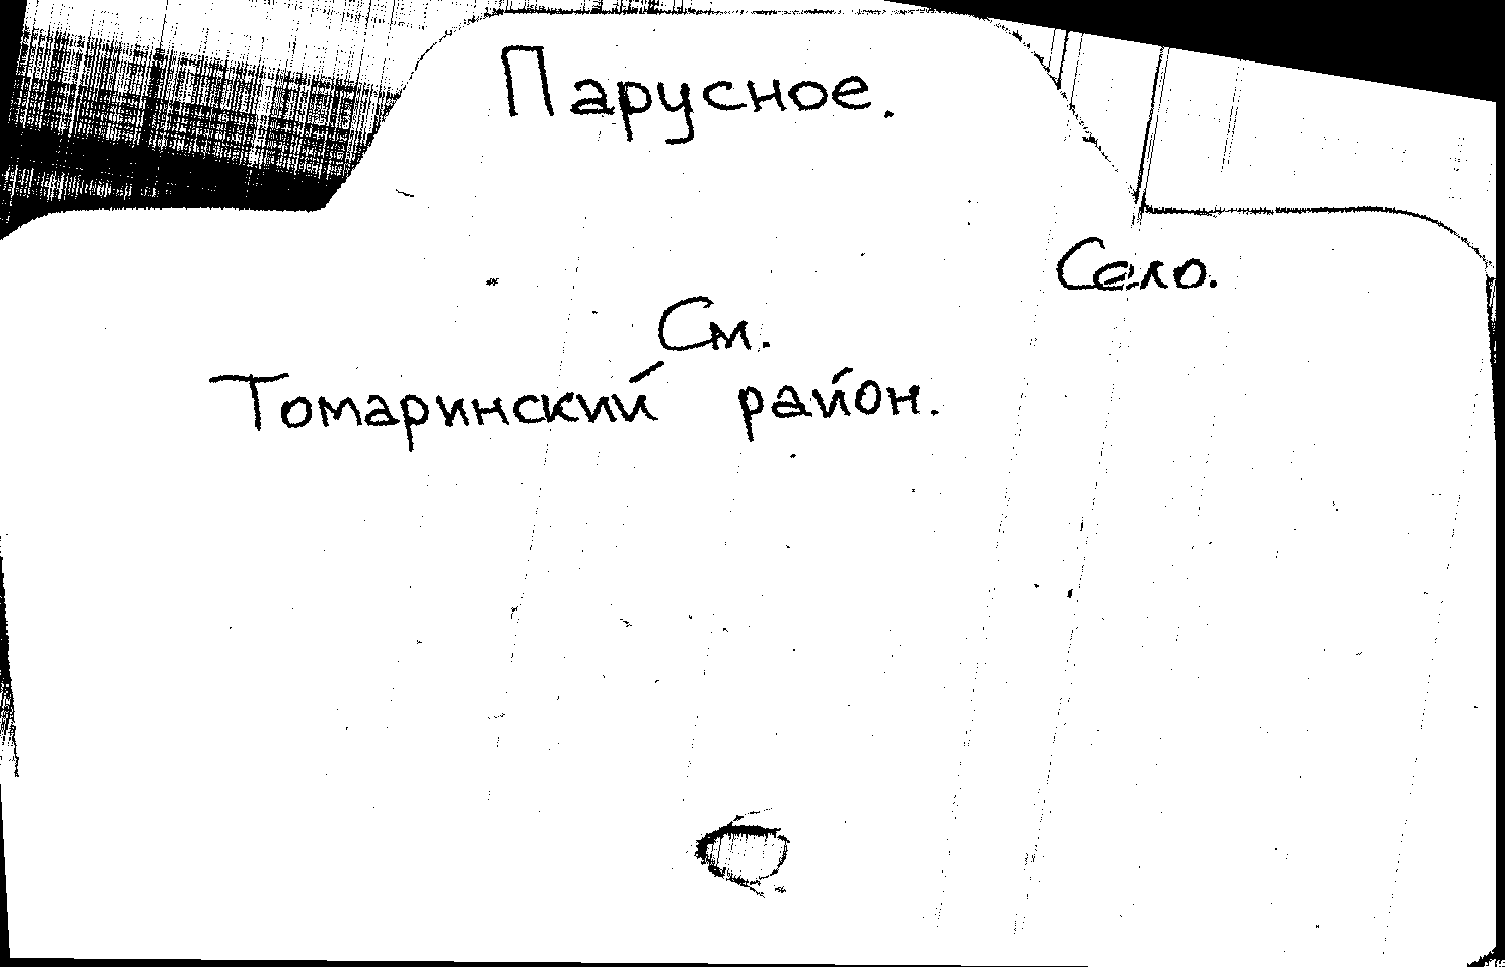 Парусное.
Село.
См.
Томаринский район.